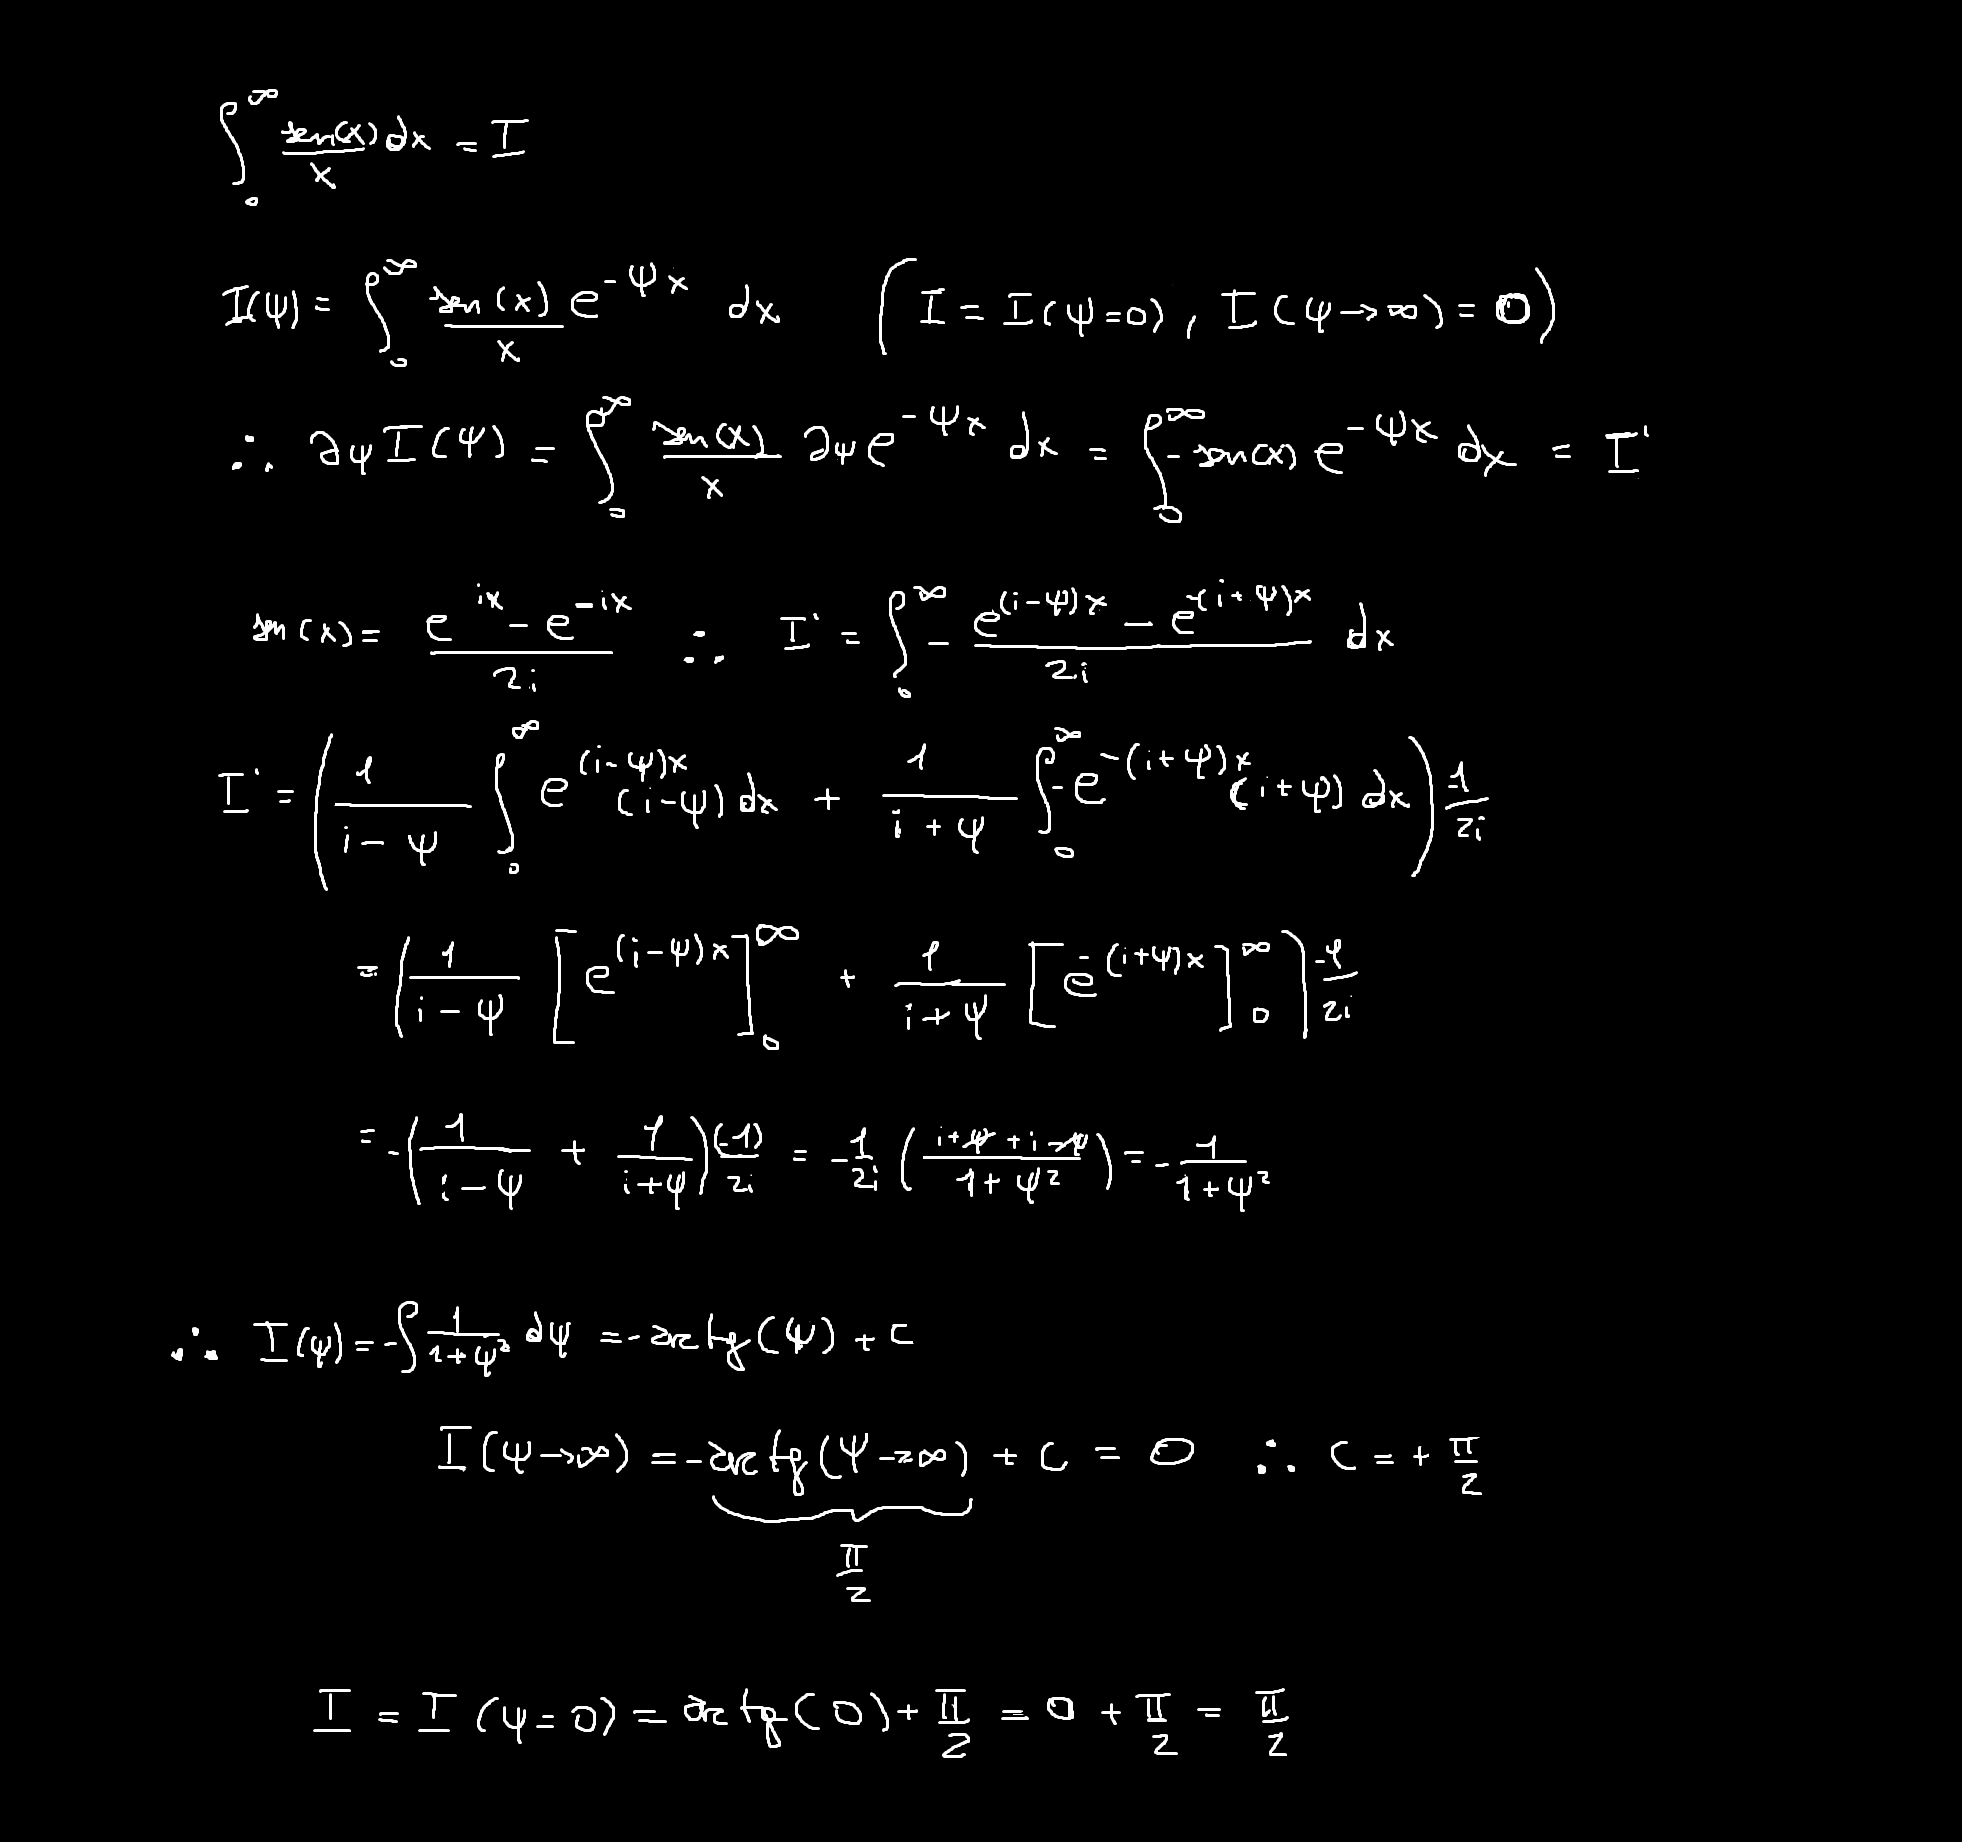 ∫₀^∞ sen(x)/x dx = I
I(ψ) = ∫₀^∞ sen(x)/x e^(-ψx) dx (I = I(ψ=0), I(ψ→∞) = 0)
∴ ∂ψ I(ψ) = ∫₀^∞ sen(x)/x ∂ψ e^(-ψx) dx = ∫₀^∞ -sen(x) e^(-ψx) dx = I'
sen(x) = (e^(ix) - e^(-ix))/2i ∴ I' = ∫₀^∞ - (e^((i-ψ)x) - e^(-(i+ψ)x))/2i dx
I' = (1/(i-ψ) ∫₀^∞ e^((i-ψ)x) (i-ψ) dx + 1/(i+ψ) ∫₀^∞ -e^(-(i+ψ)x) (i+ψ) dx) -1/2i
= (1/(i-ψ) [e^((i-ψ)x)]₀^∞ + 1/(i+ψ) [e^(-(i+ψ)x)]₀^∞) -1/2i
= -(1/(i-ψ) + 1/(i+ψ)) (-1)/2i = -1/2i ((i+ψ+i-ψ)/(1+ψ²)) = -1/(1+ψ²)
∴ I(ψ) = -∫ 1/(1+ψ²) dψ = -arctg(ψ) + c
I(ψ→∞) = -arctg(ψ→∞) + c = 0 ∴ c = +π/2
π/2
I = I(ψ=0) = arctg(0) + π/2 = 0 + π/2 = π/2